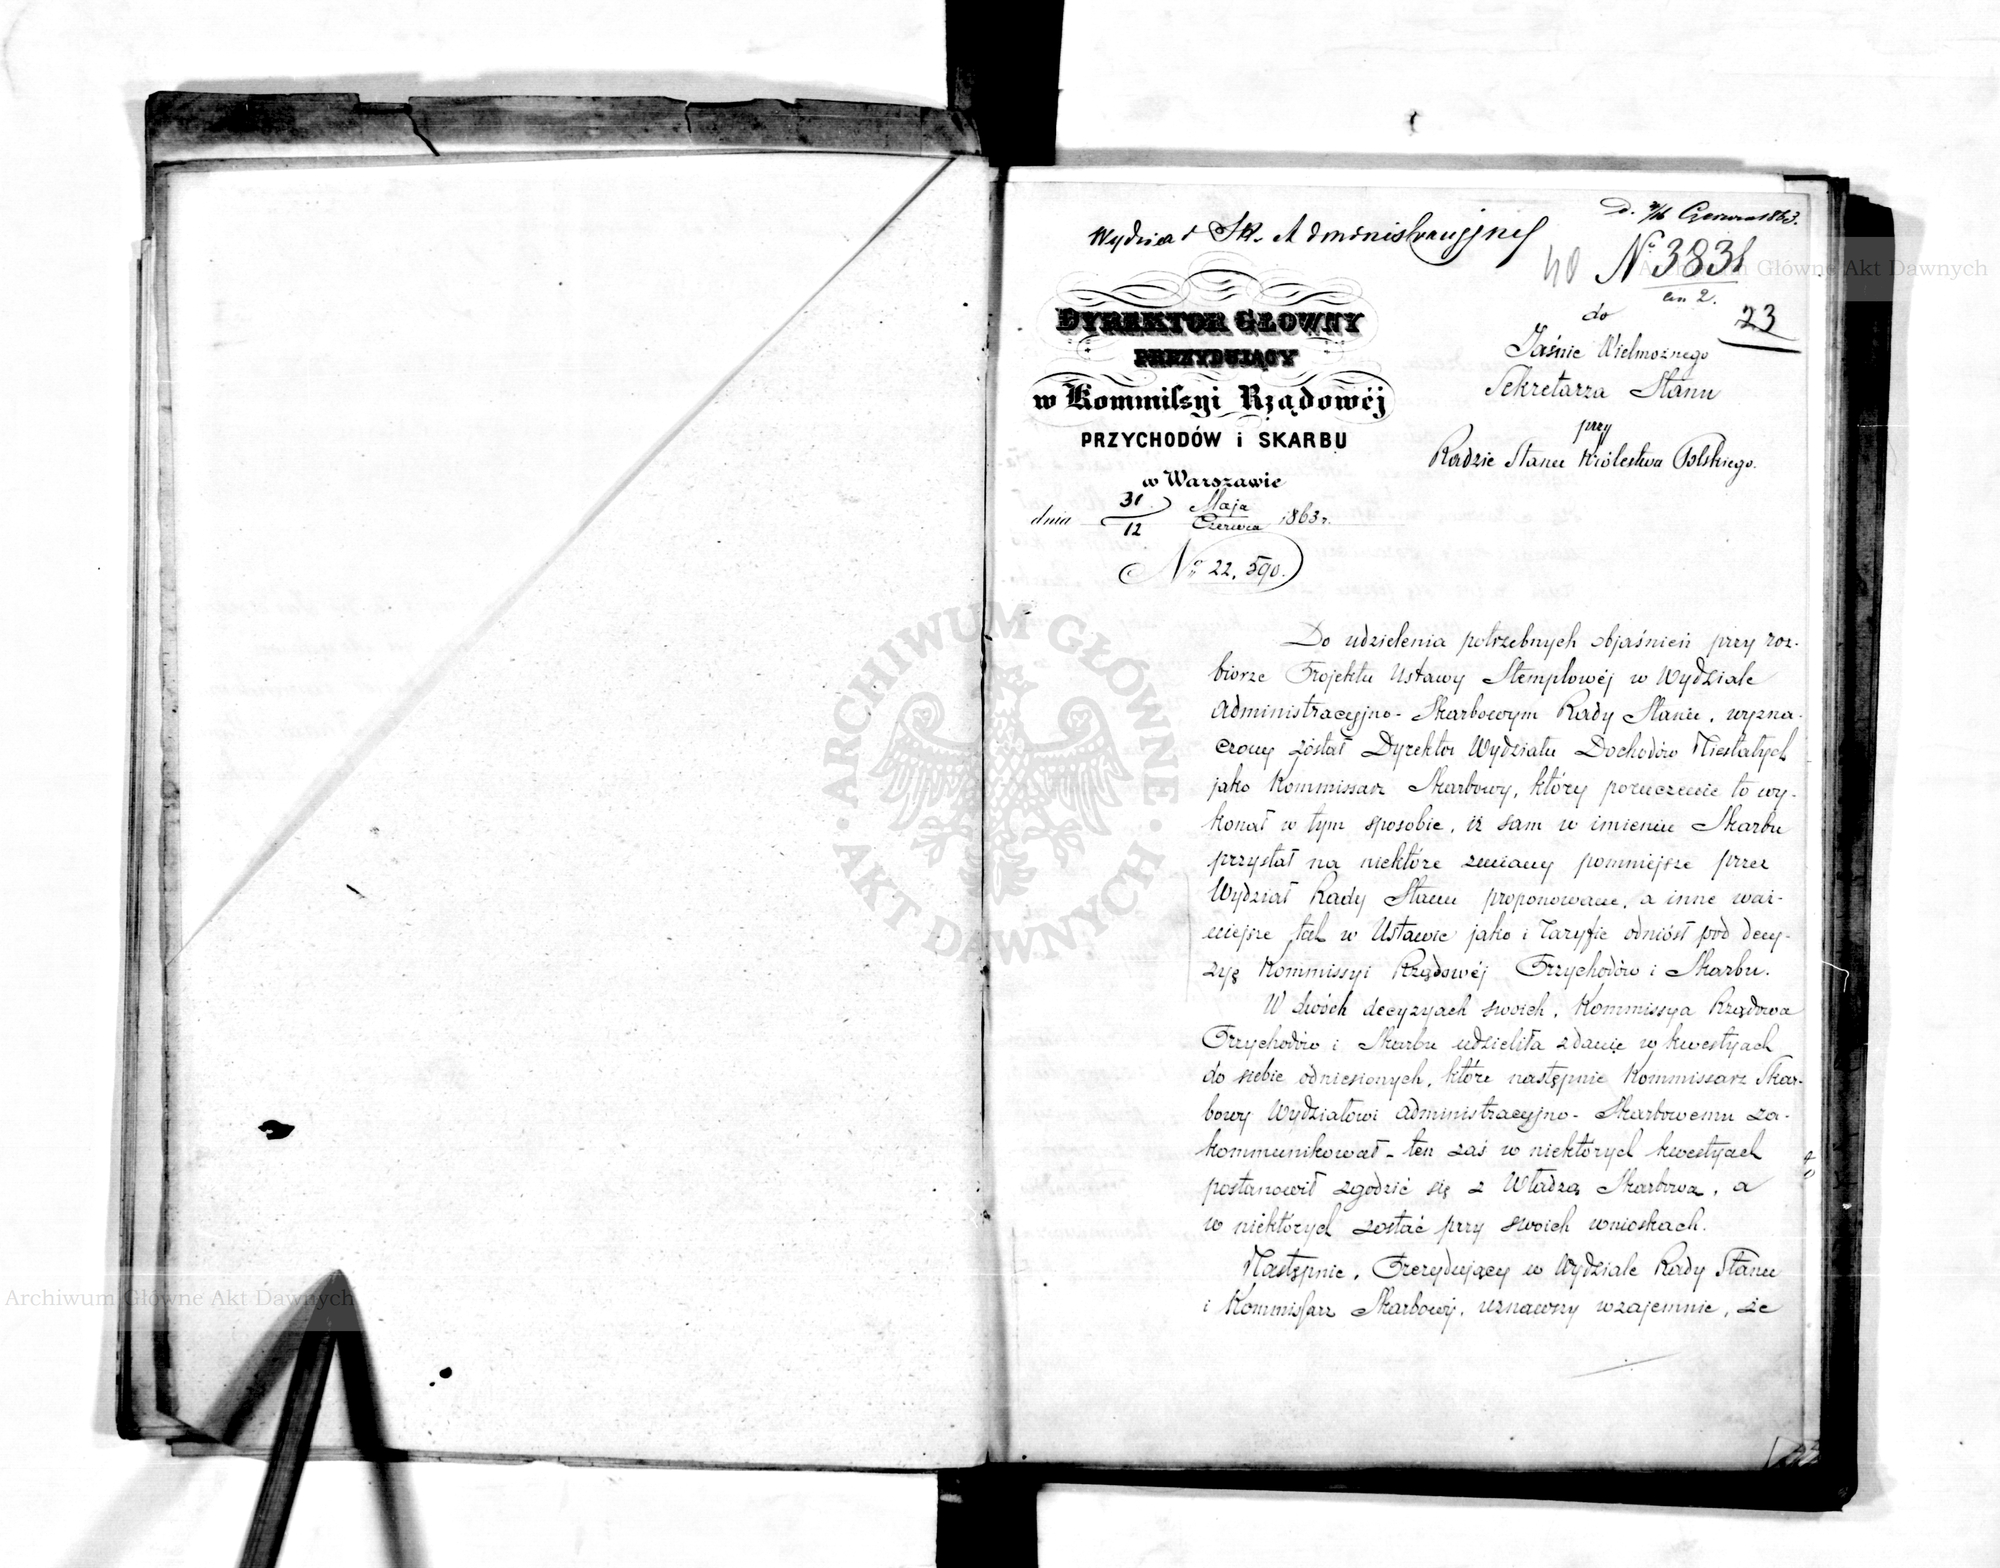 D. 4/16 Czerwca 1863.
Wydział Sk. Administracyjny
40 No 3831
do
23
Jaśnie Wielmożnego
Sekretarza Stanu
przy
Radzie Stanu Królestwa Polskiego.
DYREKTOR GŁOWNY
PREZYDUJĄCY
w Kommissyi Rządowéj
PRZYCHODÓW i SKARBU
w Warszawie
dnia 31/12 Maja/Czerwca 1863 r.
No 22,590.
Do udzielenia potrzebnych objaśnień przy roz-
biorze Projektu Ustawy Stemplowéj w Wydziale
Administracyjno-Skarbowym Rady Stanu, wyzna-
czony został Dyrektor Wydziału Dochodów Niestałych
jako Kommissarz Skarbowy, który poruczenie to wy-
konał w tym sposobie, iż sam w imieniu Skarbu
przystał na niektóre zmiany pomniejsze przez
Wydział Rady Stanu proponowane, a inne waż-
niejsze tak w Ustawie jako i Taryfie odniósł pod decy-
zyą Kommissyi Rządowéj Przychodów i Skarbu.
W dwóch decyzyach swoich, Kommissya Rządowa
Przychodów i Skarbu udzieliła zdanie w kwestyach
do siebie odniesionych, które następnie Kommissarz Skar-
bowy Wydziałowi Administracyjno-Skarbowemu za-
kommunikował - ten zaś w niektórych kwestyach
postanowił zgodzić się z Władzą Skarbową, a
w niektórych zostać przy swoich wnioskach.
Następnie, Prezydujący w Wydziale Rady Stanu
i Kommissarz Skarbowy, uznawszy wzajemnie, że
ARCHIWUM GŁÓWNE
· AKT DAWNYCH ·
Archiwum Główne Akt Dawnych
Archiwum Główne Akt Dawnych